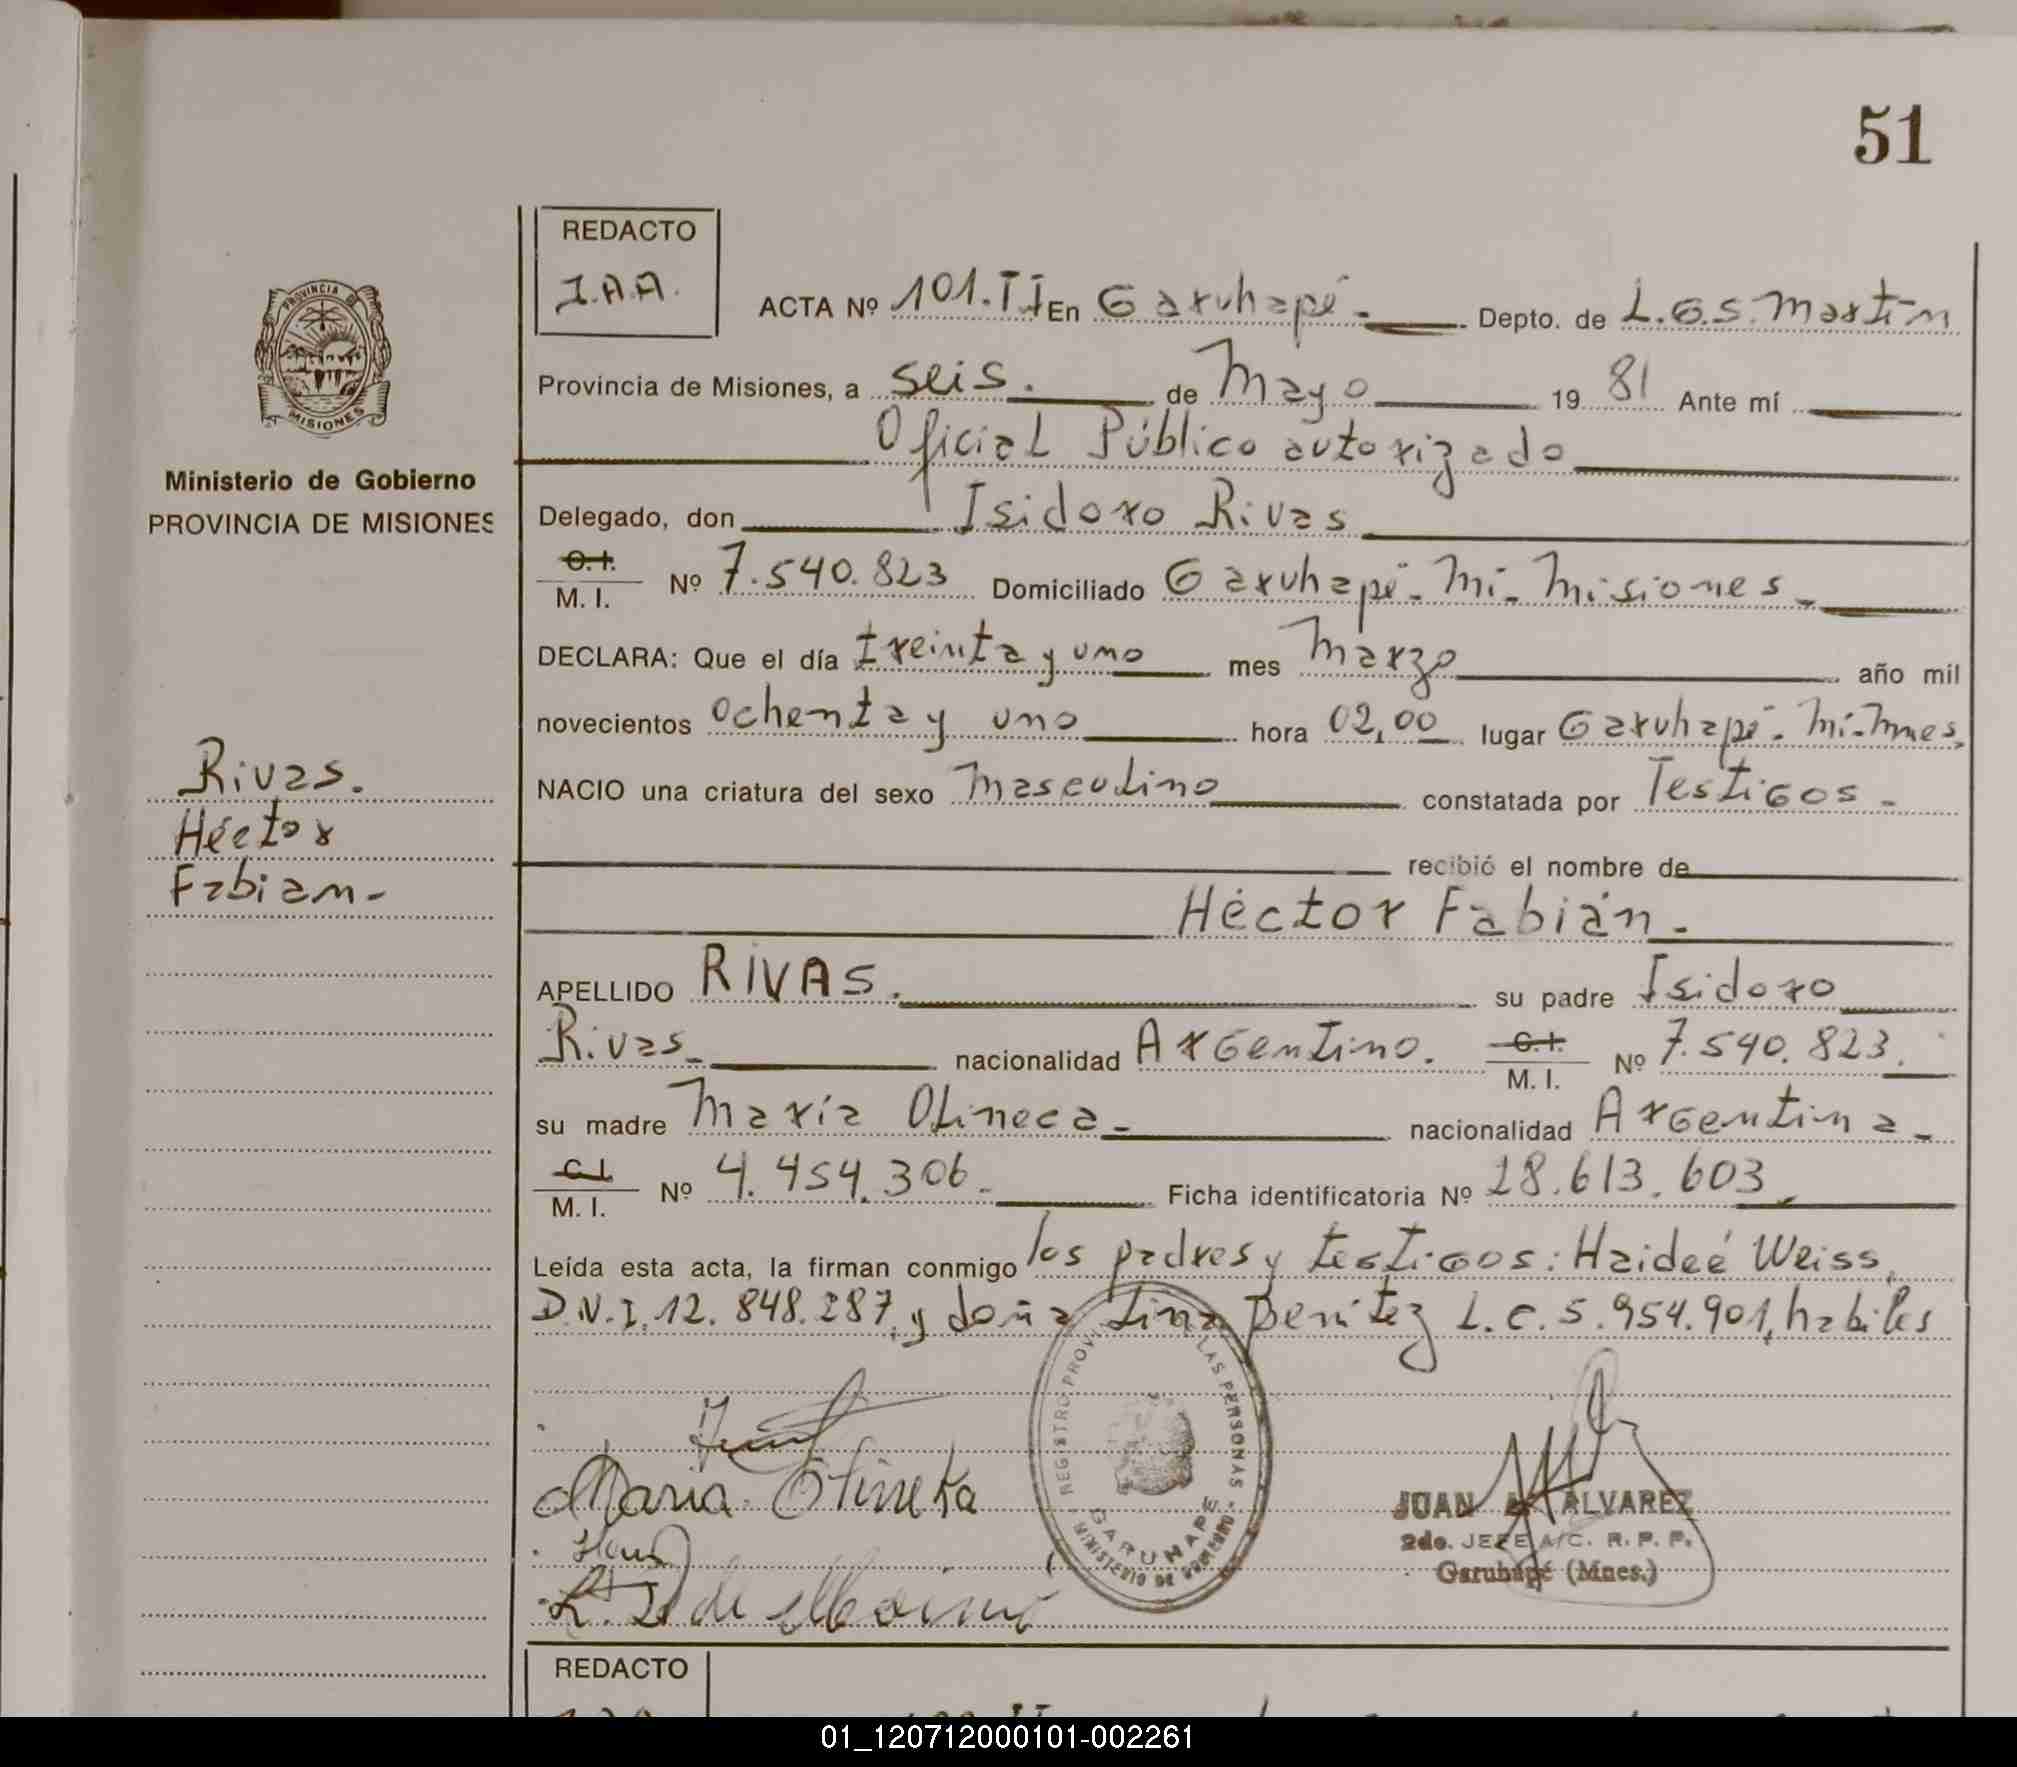 51
REDACTO
J.A.A.
ACTA Nº 101.TI En Garuhapé - Depto. de L.G.S. Martín
Provincia de Misiones, a seis. de Mayo 19 81 Ante mí
Oficial Público autorizado
Delegado, don Isidoro Rivas
C.I. M. I. Nº 7.540.823 Domiciliado Garuhapé - Mí - Misiones -
DECLARA: Que el día treinta y uno mes Marzo año mil
novecientos ochenta y uno hora 02,00 lugar Garuhapé - Mí - Mnes,
NACIO una criatura del sexo Masculino constatada por Testigos -
recibió el nombre de
Héctor Fabián -
APELLIDO RIVAS. su padre Isidoro
Rivas - nacionalidad Argentino. C.I. M. I. Nº 7.540.823.
su madre María Olineca - nacionalidad Argentina -
C.I. M. I. Nº 4.454.306 - Ficha identificatoria Nº 28.613.603
Leída esta acta, la firman conmigo los padres y testigos: Haideé Weiss,
D.N.I. 12.848.287, y doña Lina Benitez L.C. 5.954.901, habiles
PROVINCIA DE
MISIONES
Ministerio de Gobierno
PROVINCIA DE MISIONES
Rivas.
Héctor
Fabian -
Maria Olineka
REGISTRO PROV. LAS PERSONAS
GARUHAPE
MINISTERIO DE GOBIERNO
JUAN A. ALVAREZ
2do. JEFE A/C. R. P. P.
Garuhapé (Mnes.)
REDACTO
01_120712000101-002261